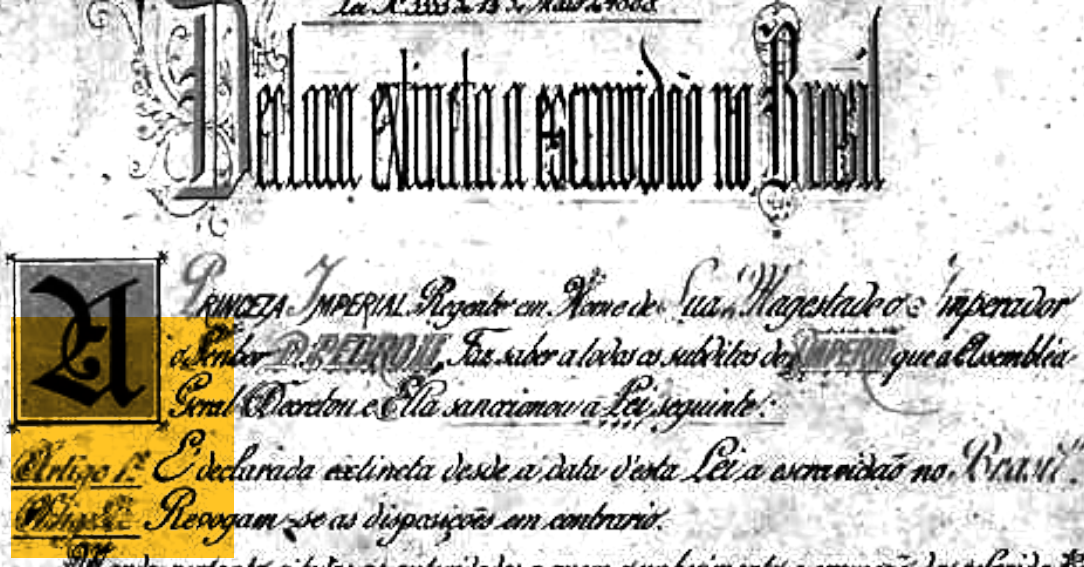 Lei Nº 3353 de 13 de Maio de 1888.
Declara extincta a escravidão no Brasil
A PRINCEZA IMPERIAL Regente em Nome de Sua Magestade o Imperador
o Senhor D. PEDRO II, Faz saber a todos os subditos do IMPERIO que a Assembléa
Geral Decretou e Ella sanccionou a Lei seguinte:
Artigo 1º É declarada extincta desde a data d'esta Lei a escravidão no Brasil.
Artigo 2º Revogam-se as disposições em contrario.
Manda portanto a todas as autoridades a quem o conhecimento e execução da referida